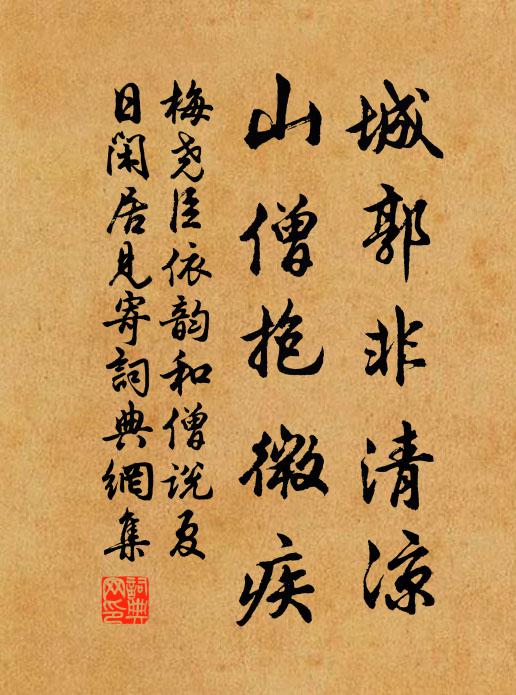 城郭非清涼
山僧抱微疾
梅堯臣依韵和僧說夏
日閑居見寄詞典網集
詞典網印